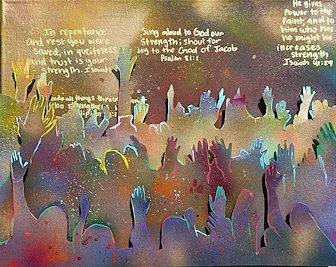 In repentance
and rest you were
saved; in quietness
and trust is your
strength. Isaiah
Sing aloud to God our
Strength; shout for
joy to the God of Jacob
Psalm 81:1
He gives
power to the
faint, and to
him who has
no might he
increases
strength
Isaiah 41:29
do all things through